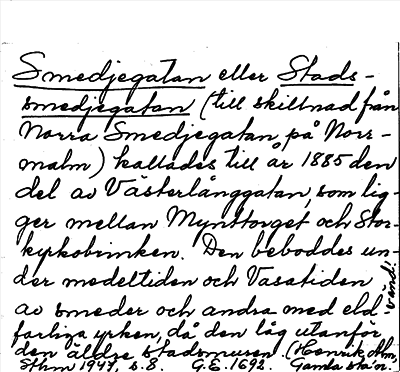 Smedjegatan eller Stads-
smedjegatan (till skillnad från
Norra Smedjegatan på Norr-
malm) kallades till år 1885 den
del av Västerlånggatan, som lig-
ger mellan Mynttorget och Stor-
kyrkobrinken. Den beboddes un-
der medeltiden och Vasatiden
av smeder och andra med eld-
farliga yrken, då den låg utanför
den äldre stadsmuren. (Henrik Alm,
Sthm 1947, s. 8. G.E. 1692. Gamla sta'n.
vänd!